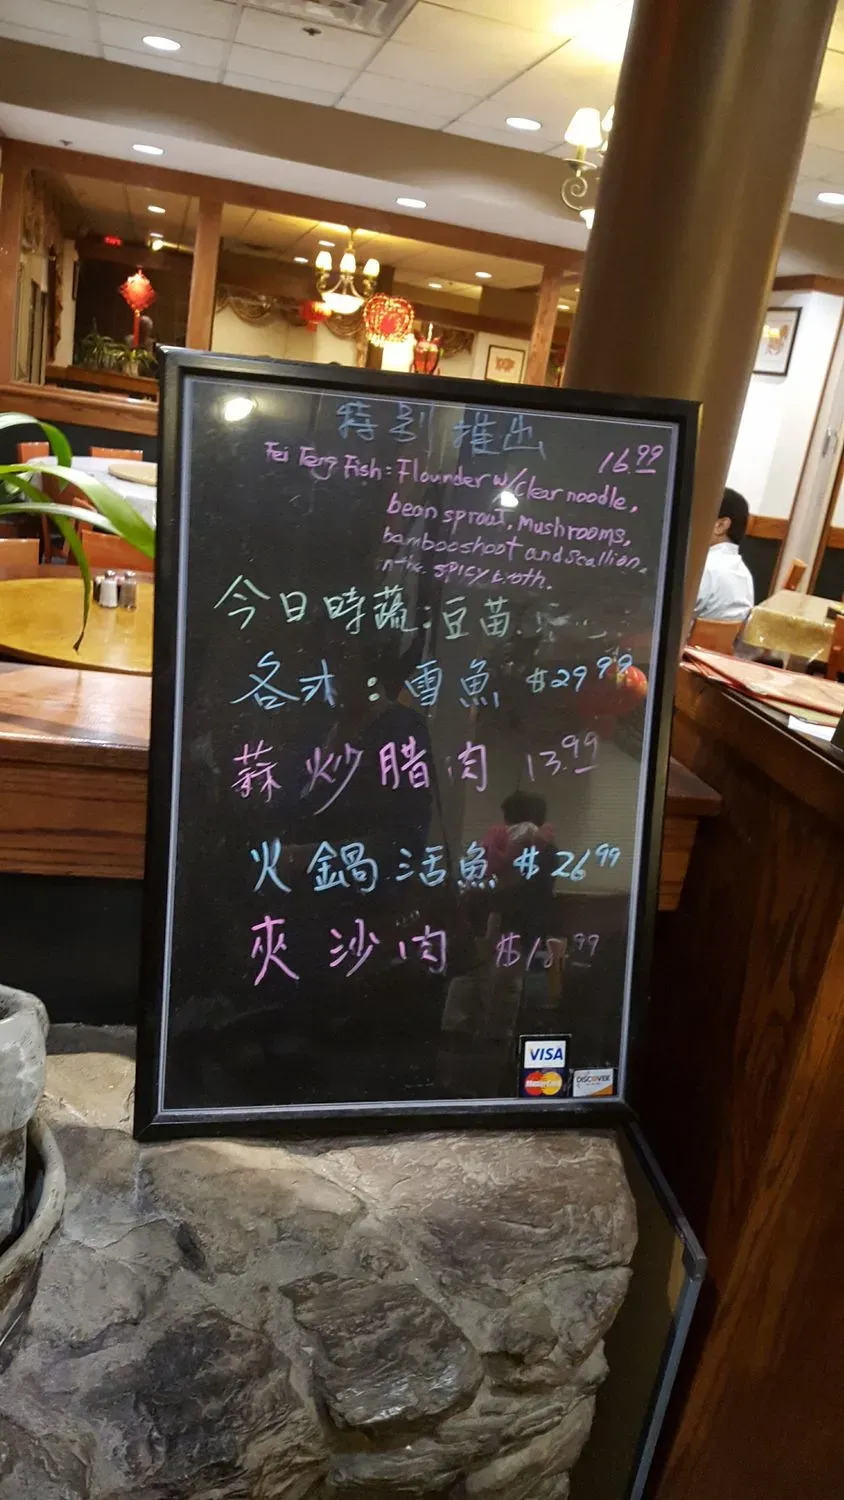 特別推出
Fei Teng Fish: Flounder w/clear noodle, 16.99
bean sprout, Mushrooms,
bamboo shoot and scallion,
in the spicy broth.
今日時蔬:豆苗
各式:雪魚 $29.99
蒜炒腊肉 13.99
火鍋活魚 $26.99
夾沙肉 $18.99
VISA
MasterCard DISCOVER